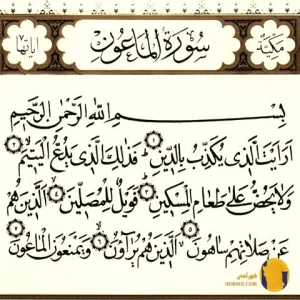 مكية سورة الماعون آياتها ٧
بسم الله الرحمن الرحيم
أرأيت الذي يكذب بالدين ١ فذلك الذي يدع اليتيم ٢
ولا يحض على طعام المسكين ٣ فويل للمصلين ٤ الذين هم
عن صلاتهم ساهون ٥ الذين هم يراؤن ٦ ويمنعون الماعون ٧